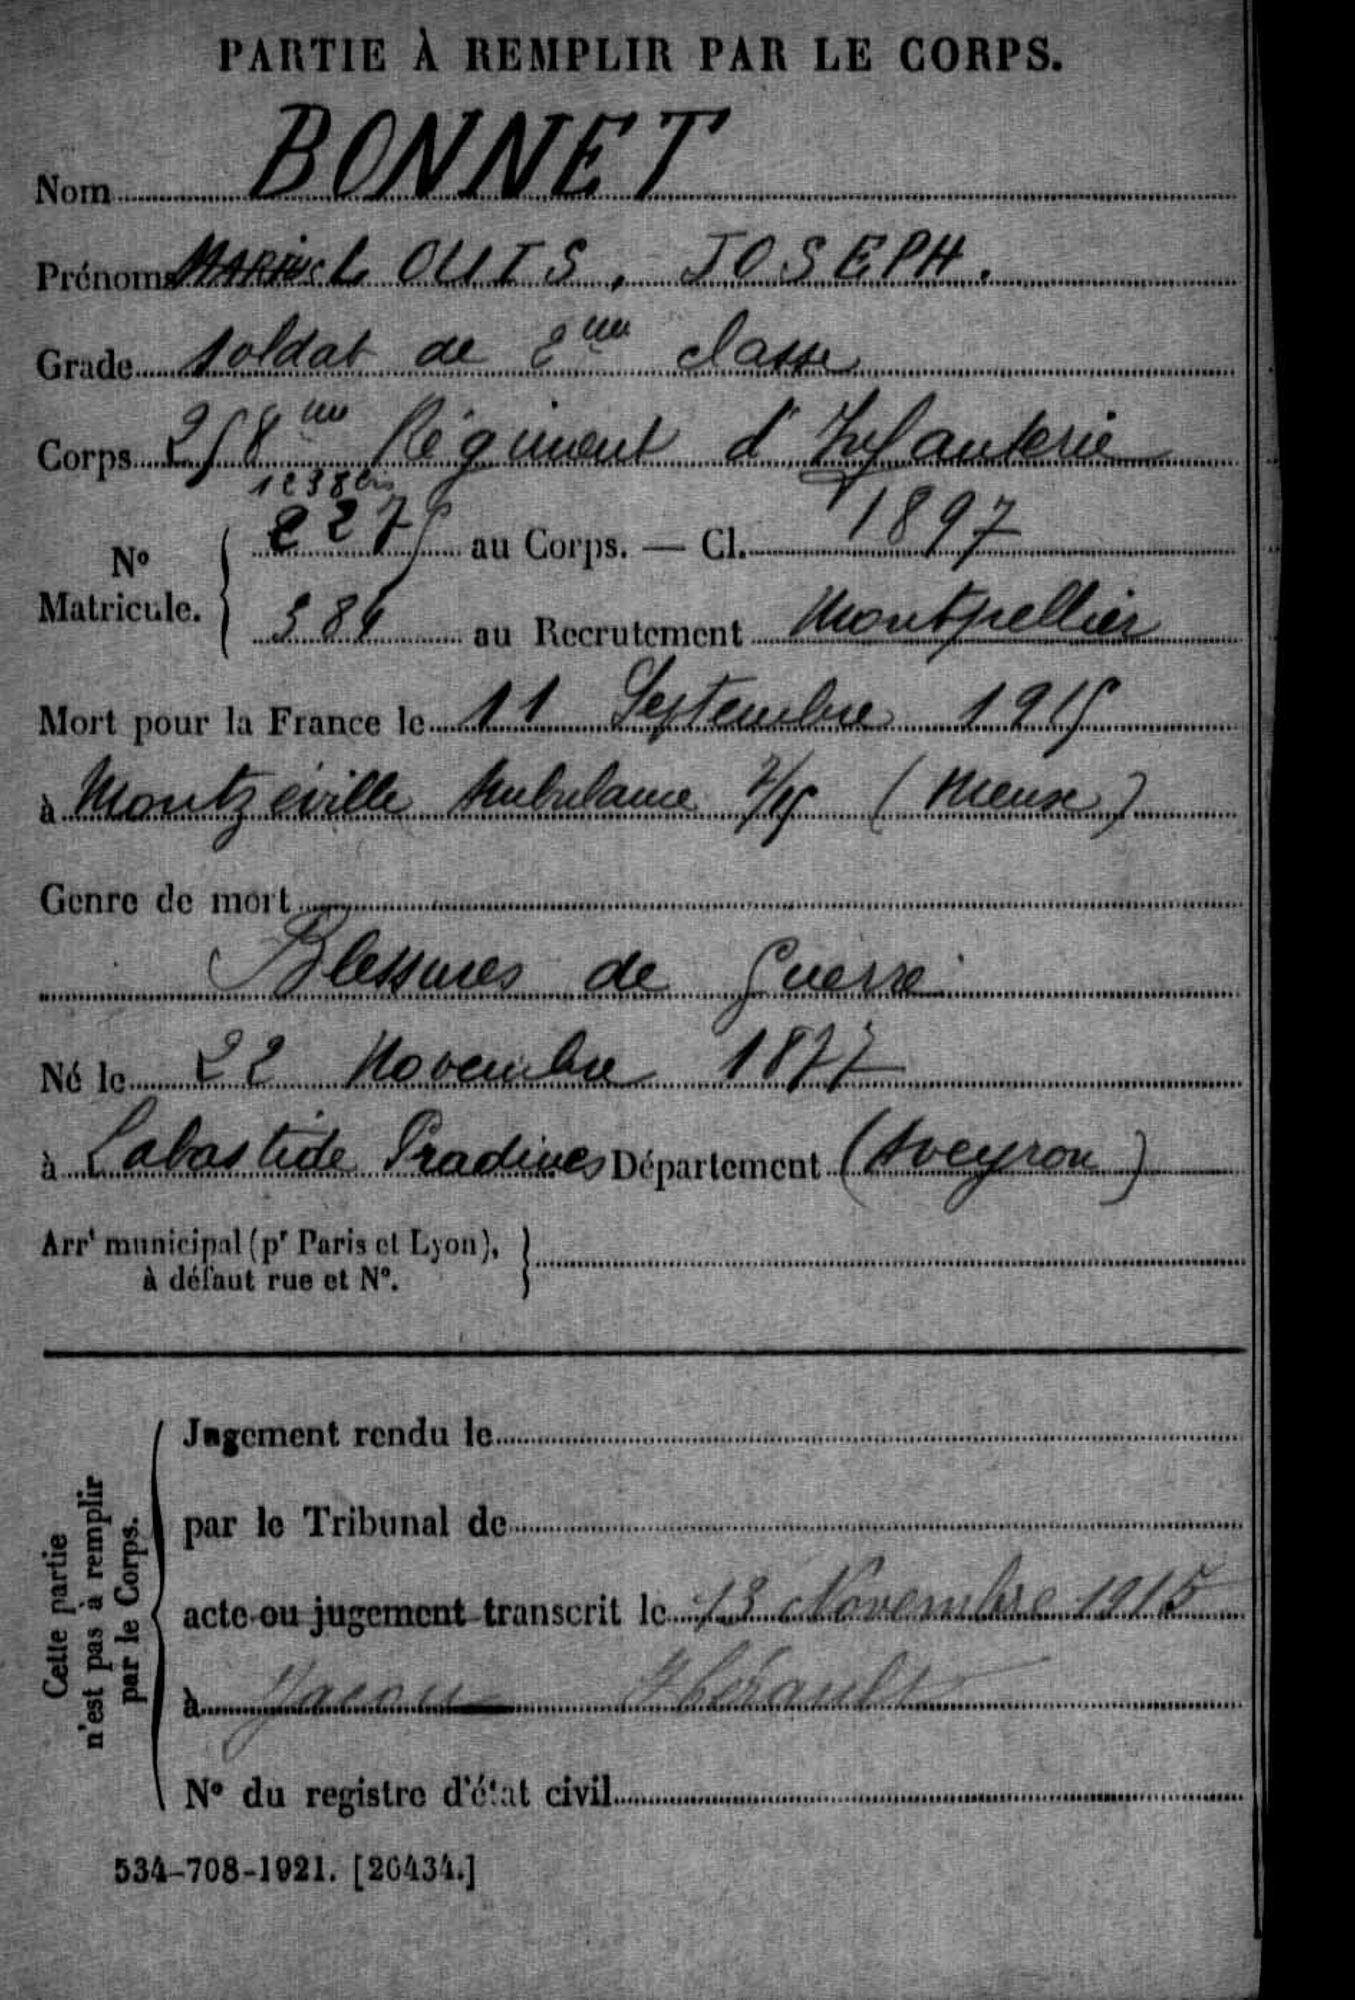 PARTIE À REMPLIR PAR LE CORPS.
Nom BONNET
Prénoms LOUIS, JOSEPH.
Grade soldat de 2me classe
Corps 258me Régiment d'Infanterie
1238 bis
Nº Matricule. { 2275 au Corps. — Cl. 1897
384 au Recrutement Montpellier
Mort pour la France le 11 Septembre 1915
à Montzéville Ambulance 7/15 (Meuse)
Genre de mort
Blessures de Guerre
Né le 22 Novembre 1877
à Labastide Pradines Département (Aveyron)
Arrt municipal (pr Paris et Lyon),
à défaut rue et Nº.
Cette partie
n'est pas à remplir
par le Corps.
Jugement rendu le
par le Tribunal de
acte ou jugement transcrit le 13 Novembre 1915
à Jacou Hérault
Nº du registre d'état civil
534-708-1921. [26434.]